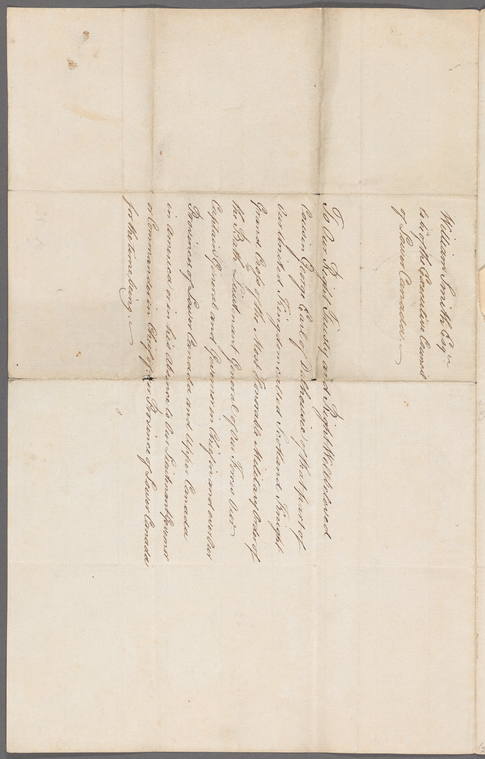 William Smith Esqre
to be of the Executive Council
of Lower Canada.
To Our Right Trusty and Right Welbeloved
Cousin George Earl of Dalhousie of that part of
Our United Kingdom called Scotland Knight
Grand Cross of the Most Honorable Military Order of
the Bath, Lieutenant General of Our Forces Our
Captain General and Governor in Chief in and over Our
Provinces of Lower Canada and Upper Canada
in America or in his Absence to Our Lieutenant Governor
or Commander in Chief of Our Province of Lower Canada
for the time being.